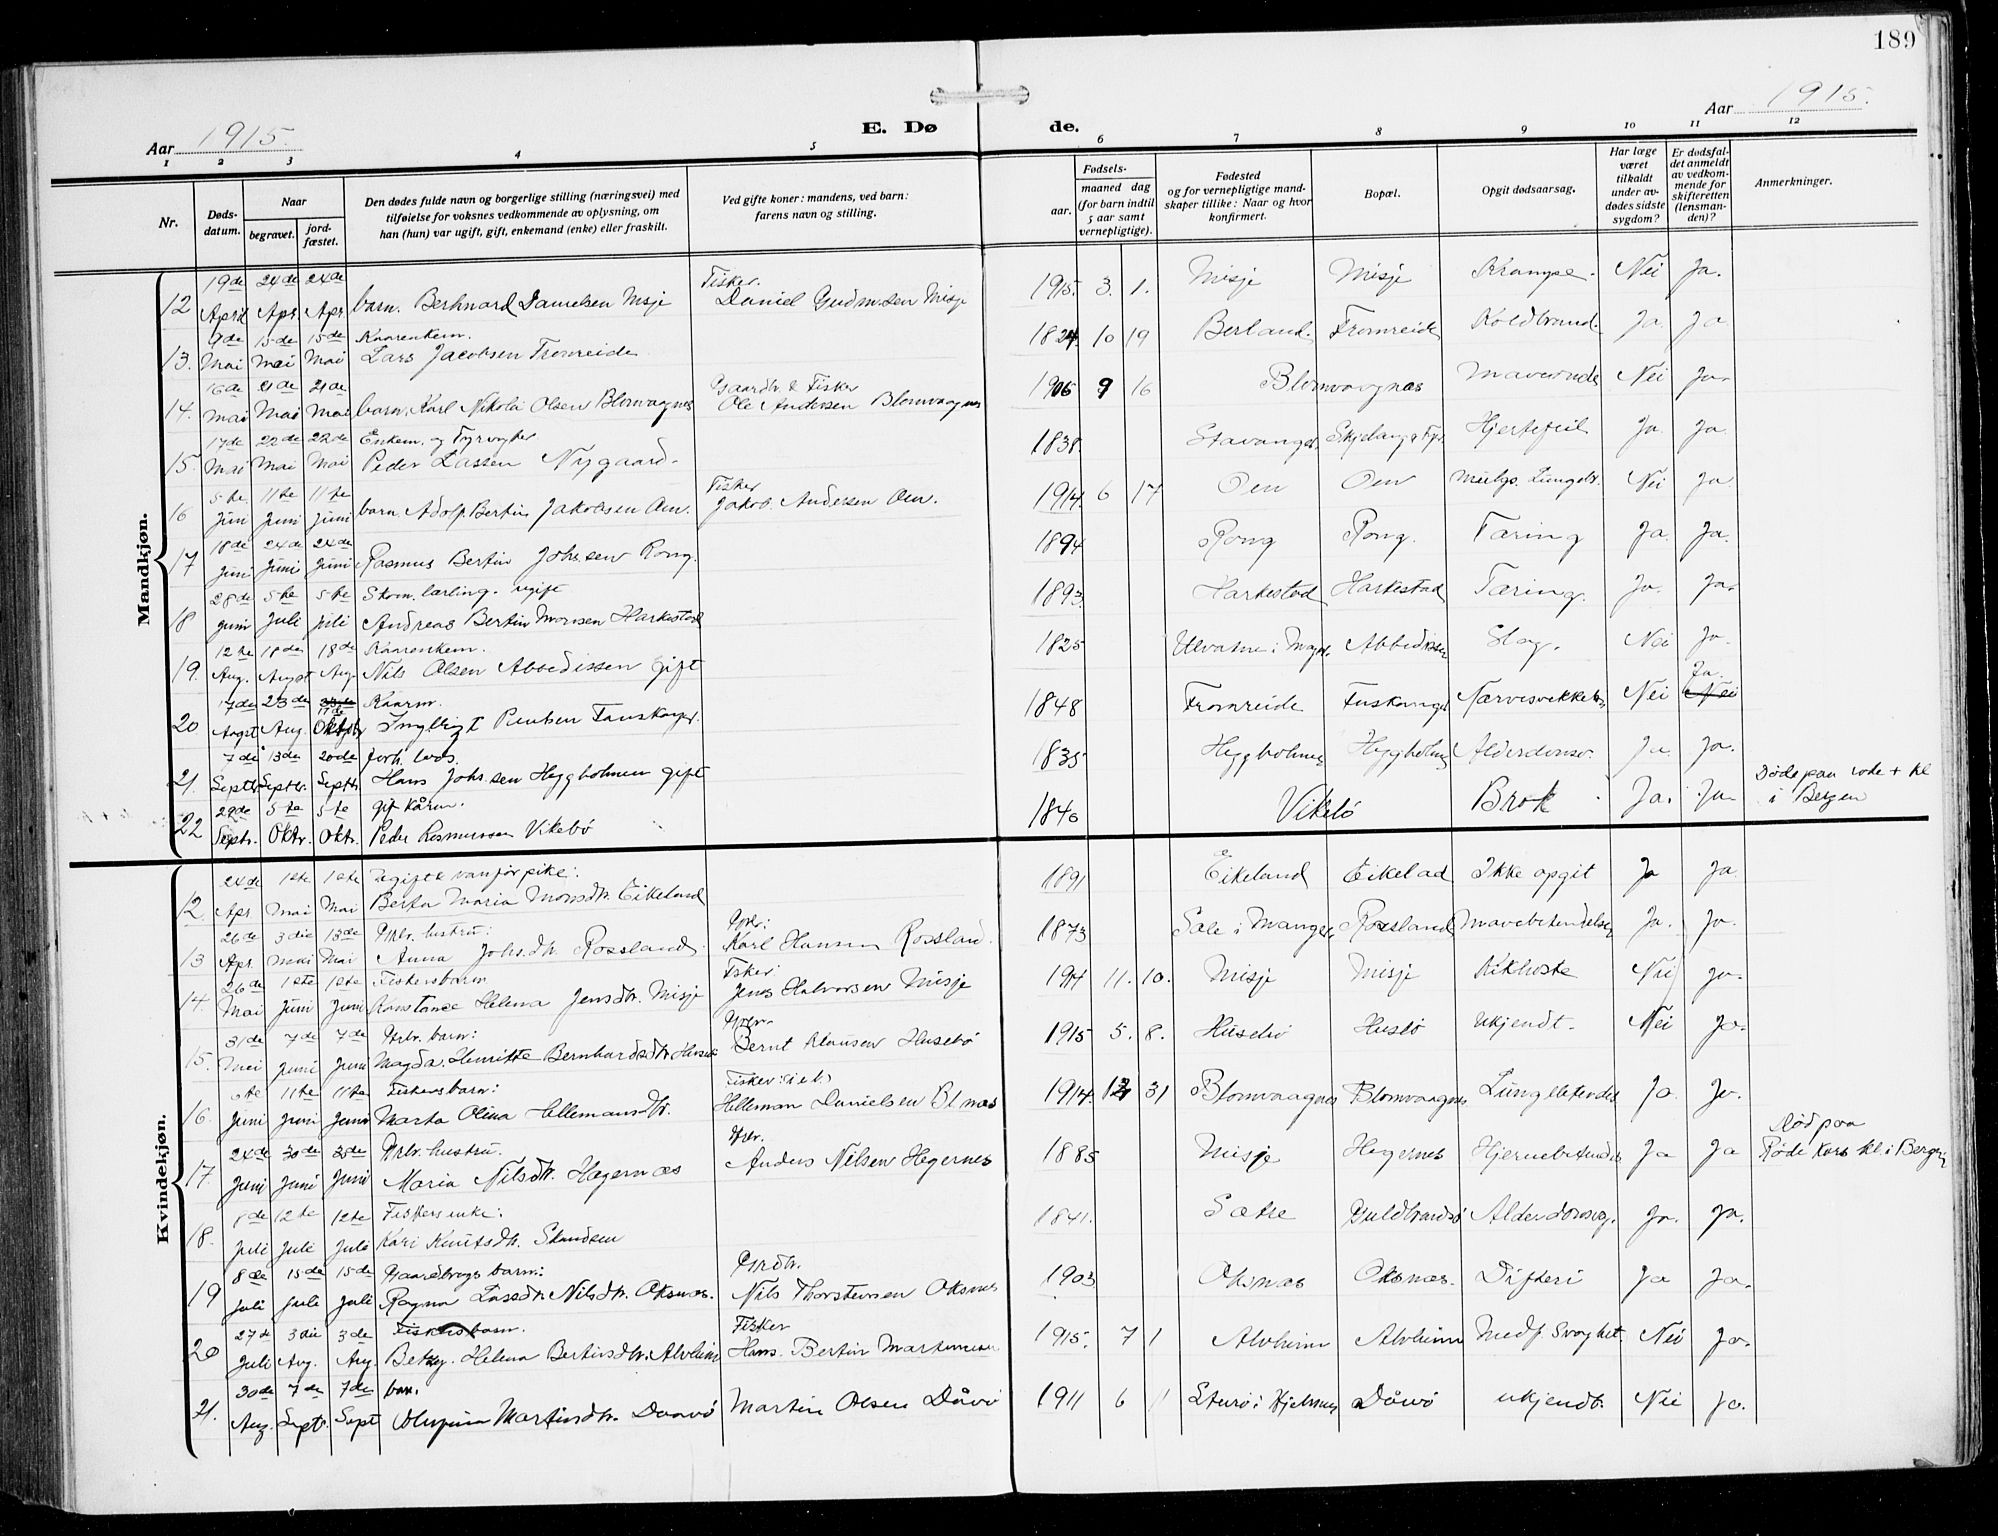 189
Aar 1915.
E. Dø
de.
Aar 1915.
1 2 3 4 5 6 7 8 9 10 11 12
Nr.
Døds-
datum.
Naar
begravet.
jord-
fæstet.
Den dødes fulde navn og borgerlige stilling (næringsvei) med
tilføielse for voksnes vedkommende av oplysning, om
han (hun) var ugift, gift, enkemand (enke) eller fraskilt.
Ved gifte koner: mandens, ved barn:
farens navn og stilling.
Fødsels-
aar.
maaned dag
(for barn indtil
5 aar samt
vernepligtige).
Fødested
og for vernepligtige mand-
skaper tillike: Naar og hvor
konfirmert.
Bopæl.
Opgit dødsaarsag.
Har læge
været
tilkaldt
under av-
dødes sidste
sygdom?
Er dødsfal-
det anmeldt
av vedkom-
mende for
skifteretten
(lensman-
den)?
Anmerkninger.
Mandkjøn.
19de 24de 24de Fisker.
12 April Apr. Apr. barn. Berhnard Danielsen Misje Daniel Gudm.sen Misje 1915. 3. 1. Misje Misje Krampe. Nei Ja.
9de 15de 15de Kaarenkem.
13. Mai Mai Mai Lars Jacobsen Tromreide 1824. 10 19 Berland. Fromreide Koldbrand. Ja. Ja
16de 21de 21de Gaardbr. & Fisker
14. Mai Mai Mai barn. Karl Nikolai Olsen Blomvagnes Ole Andersen Blomvaagnes 1906 9 16 Blomvaagnes Nei Ja.
17de 22de 22de Enkem. og Fyrvogter
15. Mai Mai Mai Peder Lassen Nygaard. 1838. Stavanger. Hjertefeil Ja. Ja.
5te 11te 11te Fisker
16 Juni Juni Juni barn. Adolf Bertin Jakobsen Oen. Jakob. Andersen Oen. 1914. 6 17 Oen Oen Nei Ja
18de 24de 24de
17 Juni Juni Juni Rasmus Bertin Johs.sen Rong. 1894 Rong Rong. Tæring Ja. Ja.
28de 5te 5te Skom. lærling. ugift
18 Juni Juli Juli Andreas Bertin Monsen Harkestad 1893. Harkestad Harkestad Tæring. Ja. Ja.
12te 18de 18de Kaarenkem.
19. Aug. August Aug. Nils Olsen Abbedissen gift 1825 Slag. Nei Ja.
17de 23de 11de Kaarm. Ja.
20 Augst Aug. Oktbr 1848 Fromreide Nei Nei
7de 13de 20de forh. lods.
21. Septbr. Septbr. Septbr Hans Johs.sen Heggholmen gift 1835 Heggholmen Ja Ja.
29de 5te 5te gif kårm. Døde paa
22 Septr. Oktr. Oktr. Peder Rasmussen Vikebø 1846 Vikebø Brok Ja. Ja i Bergen
Kvindekjøn.
24de 1ste 1ste ugift vanfør pike:
12. Apr. Mai Mai Berta Maria Monsdtr. Eikeland 1891 Eikeland Eikelad Ikke opgit Ja Ja
26de 3die 13de Grbr. hustru: Grbr:
13 Apr. Mai Mai Anna Johs.dtr. Rossland. Karl Hansen Rossland. 1873 Sæle i Manger. Rossland Mavebetendelse Ja. Ja.
26de 1ste 1ste Fiskersbarn Fisker:
14. Mai Juni Juni Konstance Helena Jensdtr. Misje Jens Halvorsen Misje 1914 11. 10. Misje Misje Kikhoste Nei Ja.
31de 7de 7de Grbr. barn: Grbr.
15. Mai Juni Juni Magda Henritte Bernhardsdtr. Bernt Klausen Husebø 1915 5. 8. Husebø Husbø ukjendt. Nei Ja.
11te 11te Fiskersbarn: Fisker:
16. Juni Juni Juni Marta Olina Hellemansdtr. Helleman Danielsen Bl.næs 1914. 12 31 Blomvaagnes Blomvaagnes Ja. Ja.
24de 30de 30de Grbr. hustru. Grbr. død paa
17. Juni Juni Juni Maria Nilsdtr. Hægernæs Anders Nilsen Hegernes 1885 Misje Hegernes Ja Ja Røde Kors kl. i Bergen
8de 12te 12te Fiskers enke:
18. Juli Juli Juli Kari Knutsdtr. Skandsen 1841. Sætre Guldbrandsø Ja. Ja.
8de 15de 15de Gaardbrugs barn: Grdbr.
19 Juli Juli Juli Ragna Lassdtr. Nilsdtr. Oksnæs. Nils Thorstensen Oksnes 1903 Oksnæs Oksnæs. Difteri Ja Ja.
27d 3die 3de Fiskersbarn. Fisker
20 Juli Aug. Aug Betsy. Helena Bertinsdtr. Alvheim Hans. Bertin Martinusen 1915. 7 1 Alvheim Alvheim Medf. Svaghet Nei Ja.
30de 7de 7de barn.
21. Aug. Septr. Sept Olufine Martinsdtr. Daavø Martin Olsen Dåvø 1911 6 1 Dåvø ukjendt. Nei Ja.